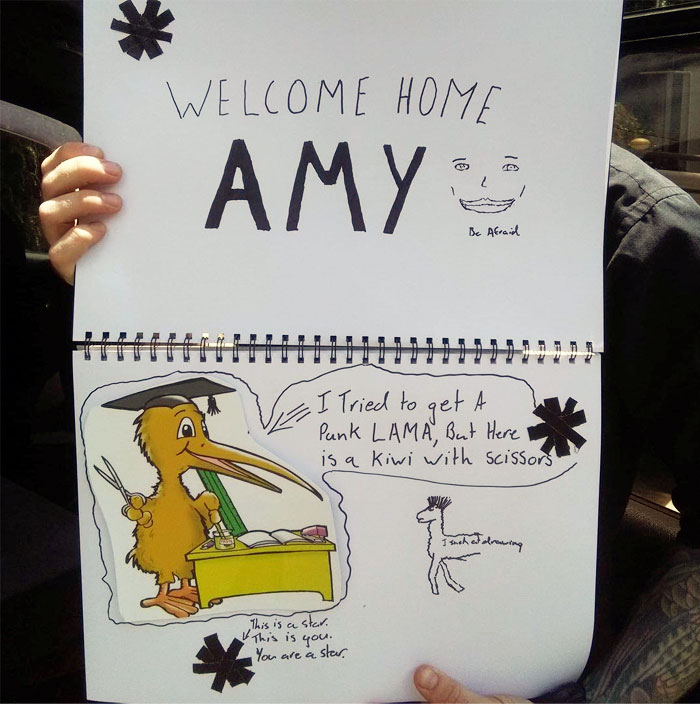 WELCOME HOME
AMY
Be Afraid
I Tried to get A
Punk LAMA, But Here
is a kiwi with scissors
I suck at drawing
This is a star.
This is you.
You are a star.